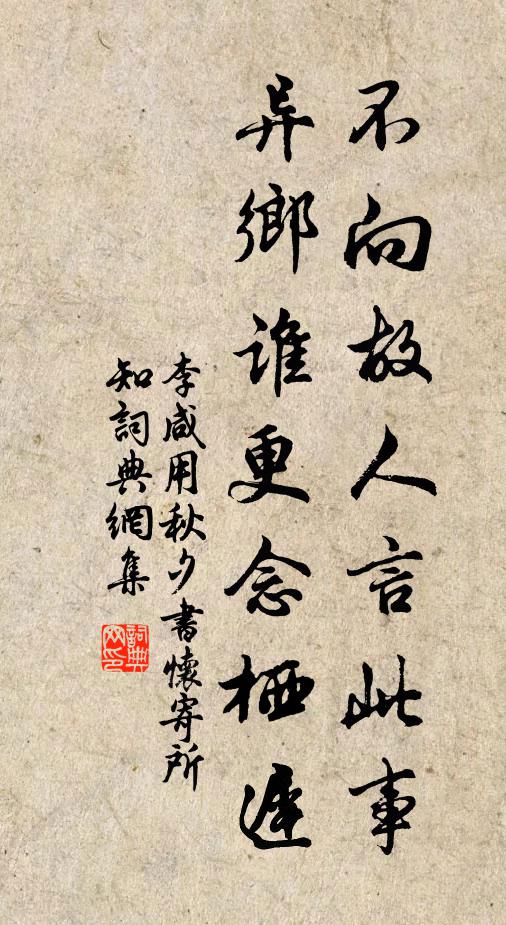 不向故人言此事
异鄉誰更念栖遲
李咸用秋夕書懷寄所
知詞典網集
詞典
网印